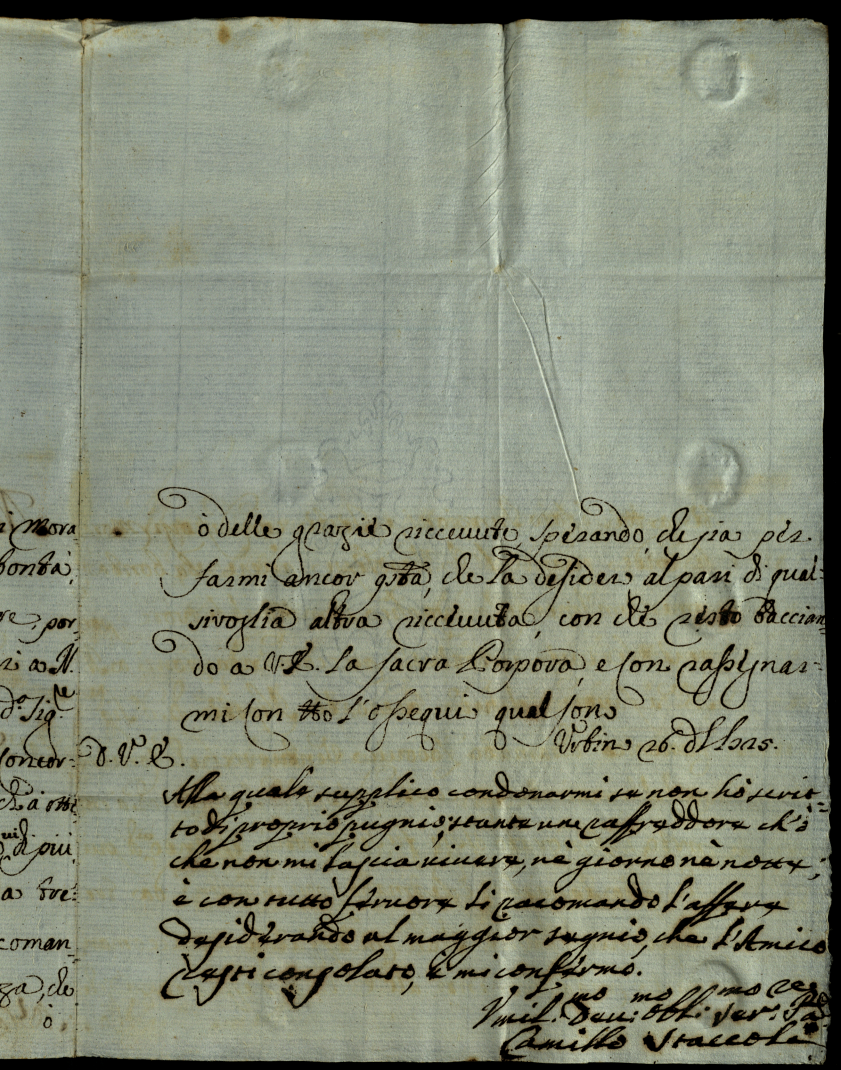 i mora
bontà,
re, por-
ri a N.
d.º Sig.re
concor-
di più
a tre-
coman-
za, che
ò
ò delle grazie riccevute sperando, che sia per
farmi ancor qsta, che la desider al pari di qual-
sivoglia altra riccevuta, con che resto baccian-
do a V.E. la sacra Porpora, e con rassegnar-
mi con tto l'ossequi qual sono
Urbin 26. 1725.
D. V. E.
Alla quale supplico condonarmi se non hò scrit-
to di proprio pugnio, stante un raffreddore ch'ò
che non mi lascia vivere, nè giorno nè notte,
è con tutto fervore li racomando l'affare
desiderando al maggior segnio, che l'Amico
resti consolato, è mi confermo.
Umil.mo Dev.mo Obl.mo Ser.re
Camillo Staccoli